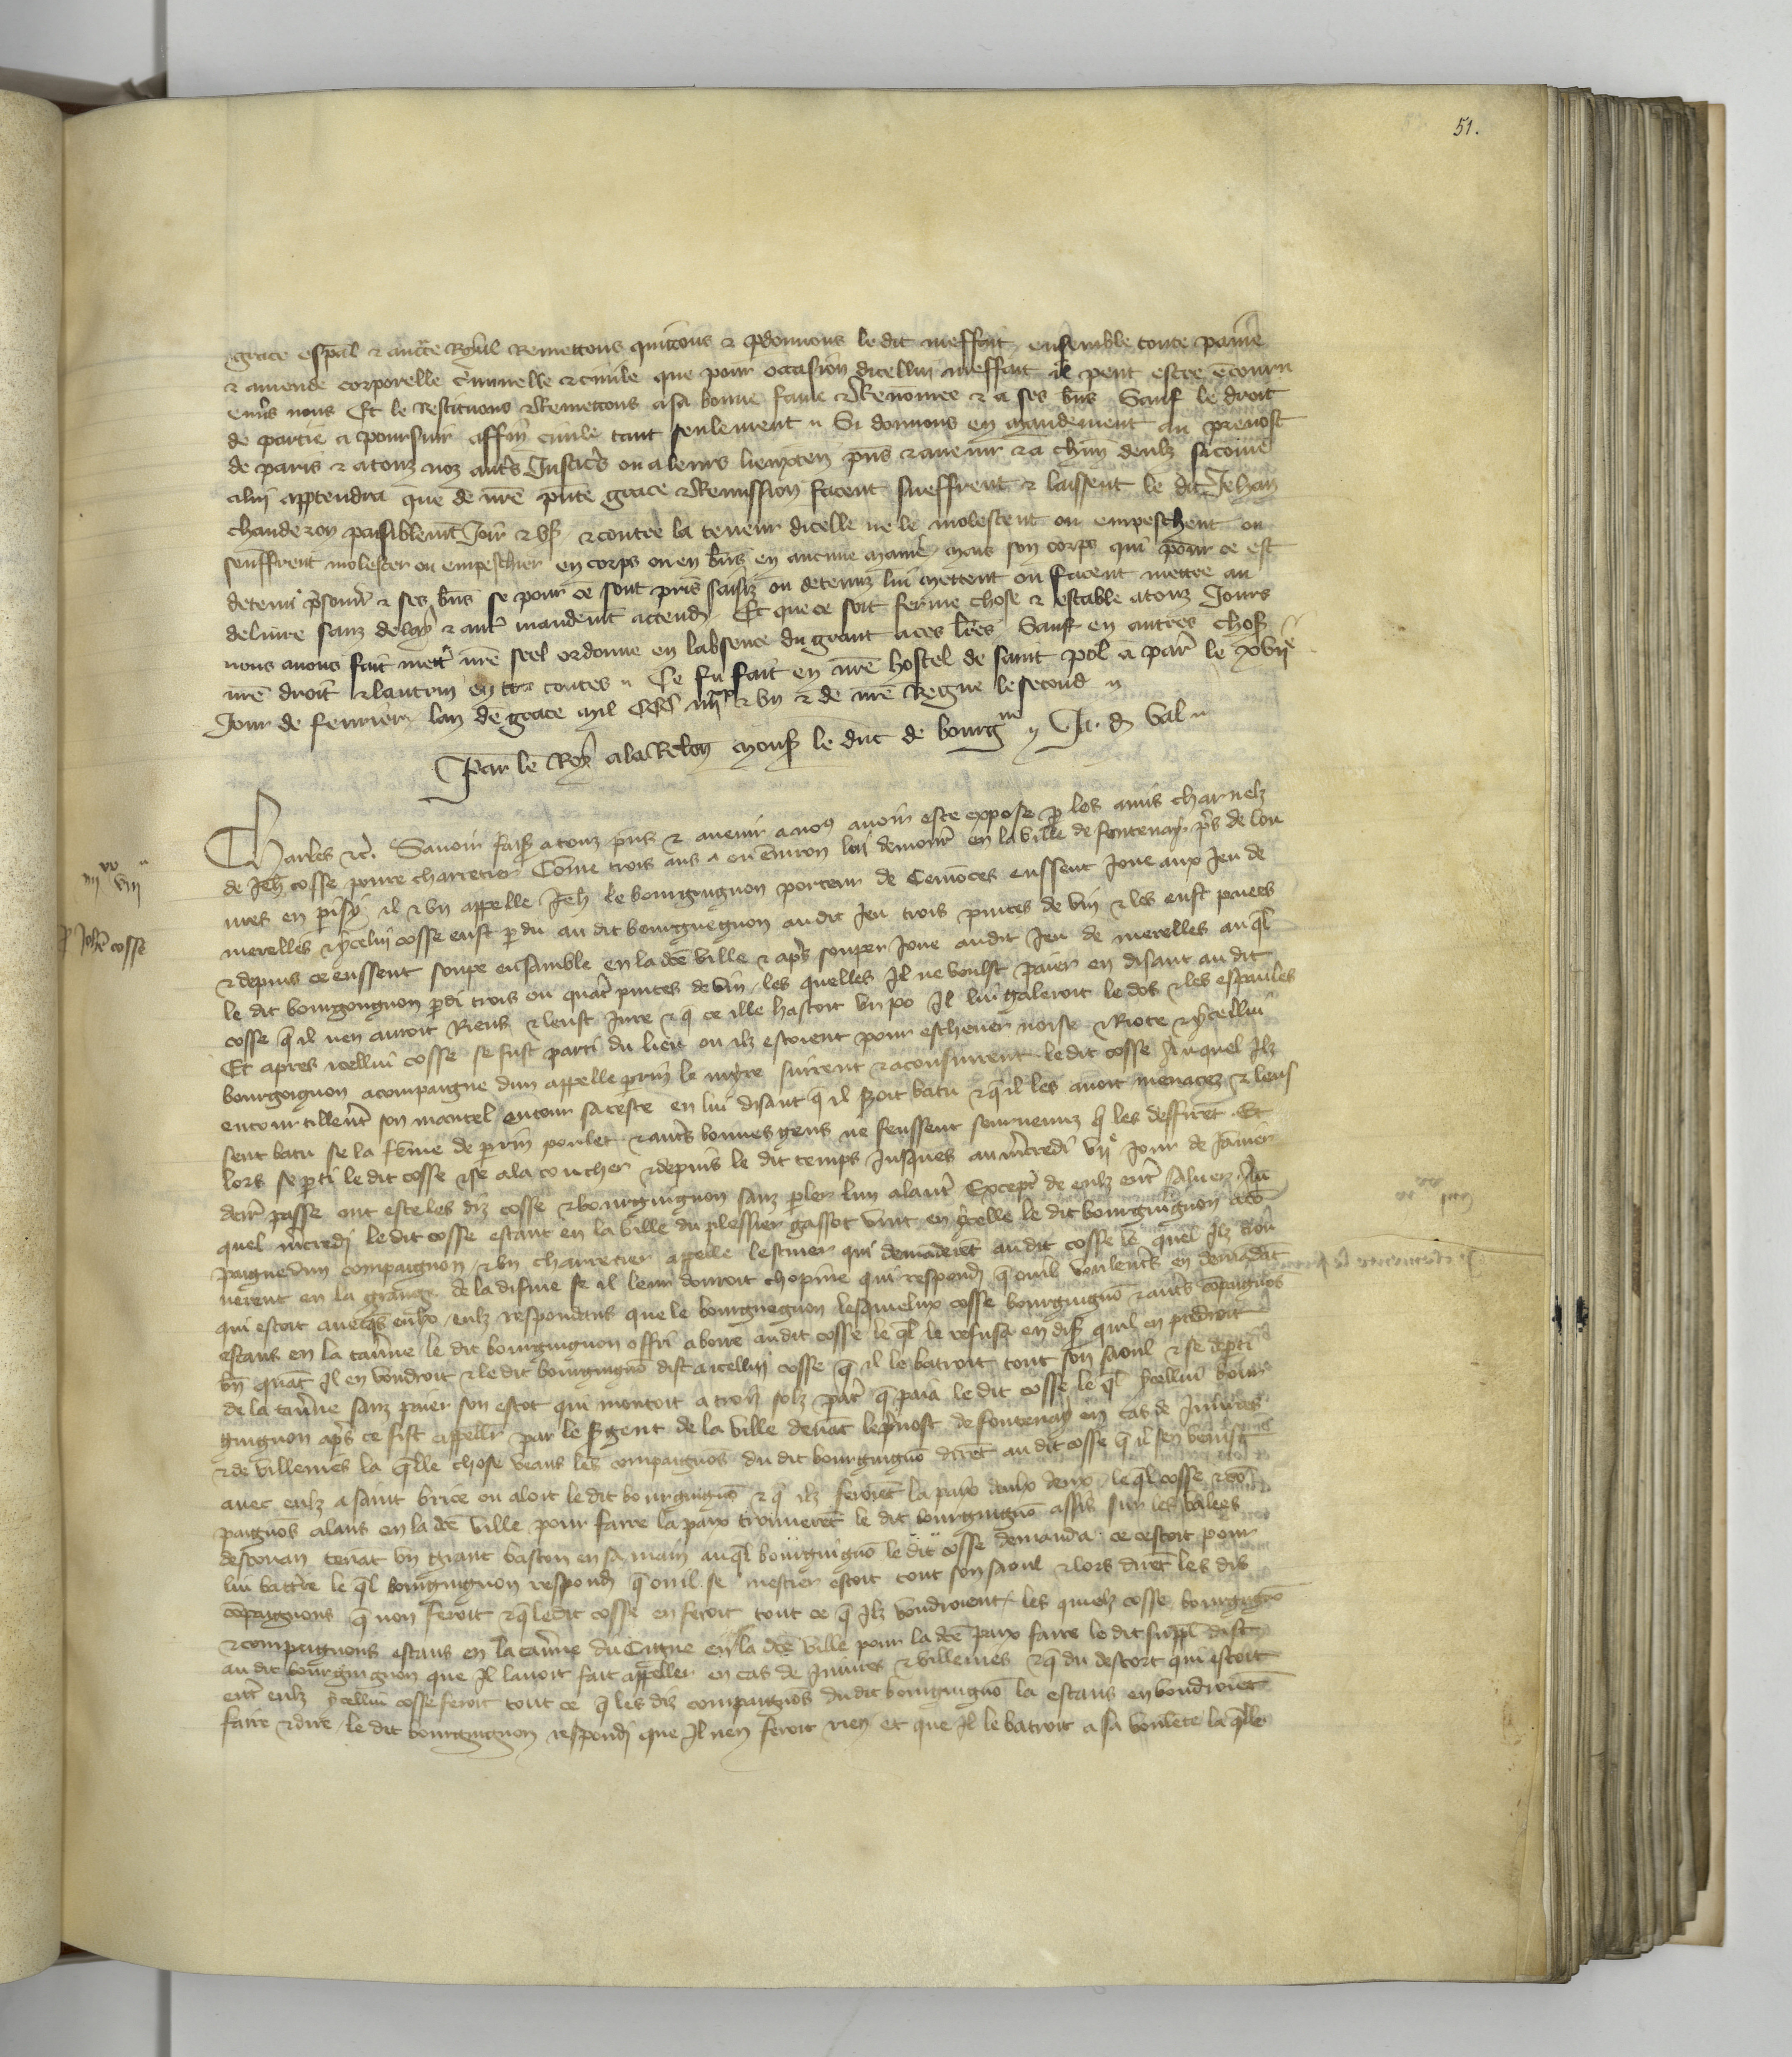 51.
grace esp̄al & auct̄e Roȳal Remettons quittons & p̱donnons le dit meffait ensemble toute paine
& amende corporelle c̄minelle & ciuile que pour occasion dicellui meffait il peut estre ēcouru
enūs nous Et le restituons & Remettons a sa bonne fame & Renōmee & a ses b̄ns Sauf le droit
de partie a poursuir affin ciuile tant seulement Si donnons en mandement au preuost
de paris & a touz noz aut̄s Justic̄s ou a leurs lieuxten p̄ns & auenir & a ch̄un deulx si come
a lui app̱tendra que de n̄re p̄nte grace & Remission facent sueffrent & laissent le dit Jehan
chauderon paisiblem̄t Joir & vs̄ & contre la teneur dicelle ne le molestent ou empeschent ou
seuffrent molester ou empeschier en corps ou en b̄ns en aucune manie mais son corps qui pour ce est
detenu p̄sonn̄ & ses b̄ns se pour ce sont pris saisiz ou detenuz lui mettent ou facent mettre au
deliure sanz delay & aut̄ mandem̄t attend̄ Et que ce soit ferme chose & estable a touz Jours
nous auons fait mett̄ n̄re seel ordonne en labsence du grant a ces l̄res Sauf en autres chos̄
n̄re droit & lautruy en toutes Ce fu fait en n̄re hostel de saint pol a par̄ le xvije
Jour de feurier lan de grace mil CCC iiijxx & vn & de n̄re Regne le second
Par le Roy a la Relacōn mons̄ le duc de bourgne Ja. d. val
Charles &c̄. Sauoir fais̄ a touz p̄ns & auenir a nous auoir este expose p̱ les amis charnelz
de Jeh̄ cosse poure charretier Cōme trois ans a ou enuiron lui demour̄ en la ville de fontenay p̄s de lou
ures en p̄isy il & vn appelle Jeh̄ le bourguignon porteur de Cemōces eussent Joue aux Jeu de
merelles & ycelui cosse eust p̱du au dit bourguegnon au dit Jeu trois pintes de vin & les eust paiees
& depuis ce eussent soupe ensamble en la dc̄e ville & ap̄s souper Joue au dit Jeu de merelles au q̄l
le dit bourgongnon p̱di trois ou quat̄ pintes de vin les quelles Il ne voulst paier en disant au dit
cosse q̄ il nen auroit Riens & leust Jure & q̄ ce ille hastoit vn po Il lui galeroit le dos & les espaules
Et apres icellui cosse se fust parti du lieu ou ilz estoient pour escheuer noise & Riote & ycellui
bourgoignon acompaigne dun appelle p̱rin le myre suirent & aconsuirent le dit cosse Auquel Ilz
encourtillerent son mantel entour sa teste en lui disant q̄ il s̄oit batu & q̄ il les auoit menacez & leus
sent batu se la fēme de p̱rin poulet & aut̄s bonnes gens ne feussent seuruenuz q̄ les deffirēt Et
lors se p̱ti le dit cosse & se ala coucher & depuis le dit temps Jusques au m̄credi vije Jour de Jāuier
den̄r passe ont este les diz cosse & bourguignon sanz p̱ler lun a laut̄ Excepte de eulz ent̄ saluer Au
quel m̄credi le dit cosse estant en la ville du plessier gassot vint en ycelle le dit bourguignon acō
paigne dun compaignon & vn charretier appelle lestuier qui demāderēt au dit cosse le quel Ilz trou
uerent en la grange de la disme se il leur donroit chopine qui respondi q̄ ouil voulent̄s en demādāt
qui estoit auecq̄s eulx / eulz respondans que le bourguegnon lesquelux cosse bourguignō & aut̄s cōpaignōs
estans en la tau̱ne le dit bourguignon offri a boire au dit cosse le q̄l le refusa en dis̄ quil en p̄ndroit
bn̄ quāt Il en vondroit & le dit bourguignō dist a icellui cosse q̄ il le batroit tout son saoul & se dep̱ti
de la tau̱ne sanz paier son escot qui montoit a trois solz p̱ar̄ q̄ paia le dit cosse le q̄l ycellui bour
guignon ap̄s ce fist appell̄r par le s̄gent de la ville deuāt lep̄uost de fontenay en cas de Iniures
& de villenies la q̄lle chose veans les compaignōs du dit bourguignō dirēt au dit cosse q̄ il sen venist
auec eulz a saint brice ou aloit le dit bourguignō & q̄ ilz feroiēt la paix deulx deux le q̄l cosse & cō
paignōs alans en la dc̄e ville pour faire la paix trouuerēt le dit bourguignō assis sur les valees
descouan tenāt vn grant baston en sa main au q̄l bourguignō le dit cosse demanda ce cestoit pour
lui batt̄re le q̄l bourguignon respondi q̄ ouil se mestier estoit tout son saoul & lors dirēt les dis
cōpaignons q̄ non feroit & q̄ ledit cosse en feroit tout ce q̄ Ilz voudroient / les quielz cosse bourguignō
& compaignons estans en la tau̱ne du Cigne en la dc̄e ville pour la dc̄e paix faire le dit suppl̄ dist
au dit bourguignon que Il lauoit fait appeller en cas de Iniures & villenies & q̄ du descort qui estoit
ent̄ eulz ycellui cosse feroit tout ce q̄ les diz compaignōs du dit bourguignō la estans en voudroiēt
faire & dire / le dit bourguignon respondi que Il nen feroit rien et que Il le batroit a sa voulente la q̄lle
iiijxx viij
p̱ Joh̄e cosse